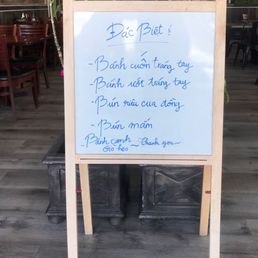 Đặc Biệt!
- Bánh cuốn tráng tay
- Bánh ướt tráng tay
- Bún riêu cua đồng
- Bún mắm
- Bánh canh giò heo
~ Thank you